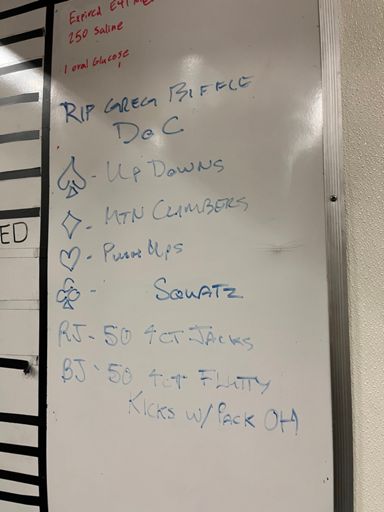 Expired
250 Saline
1 oral Glucose
RIP GREG BIFFLE
DoC
♠ - Up Downs
♦ - MTN CLIMBERS
♥ - Push Ups
♣ - SQUATZ
RJ - 50 4CT JACKS
BJ - 50 4ct FLUTTY
KICKS W/ PACK OH
ED